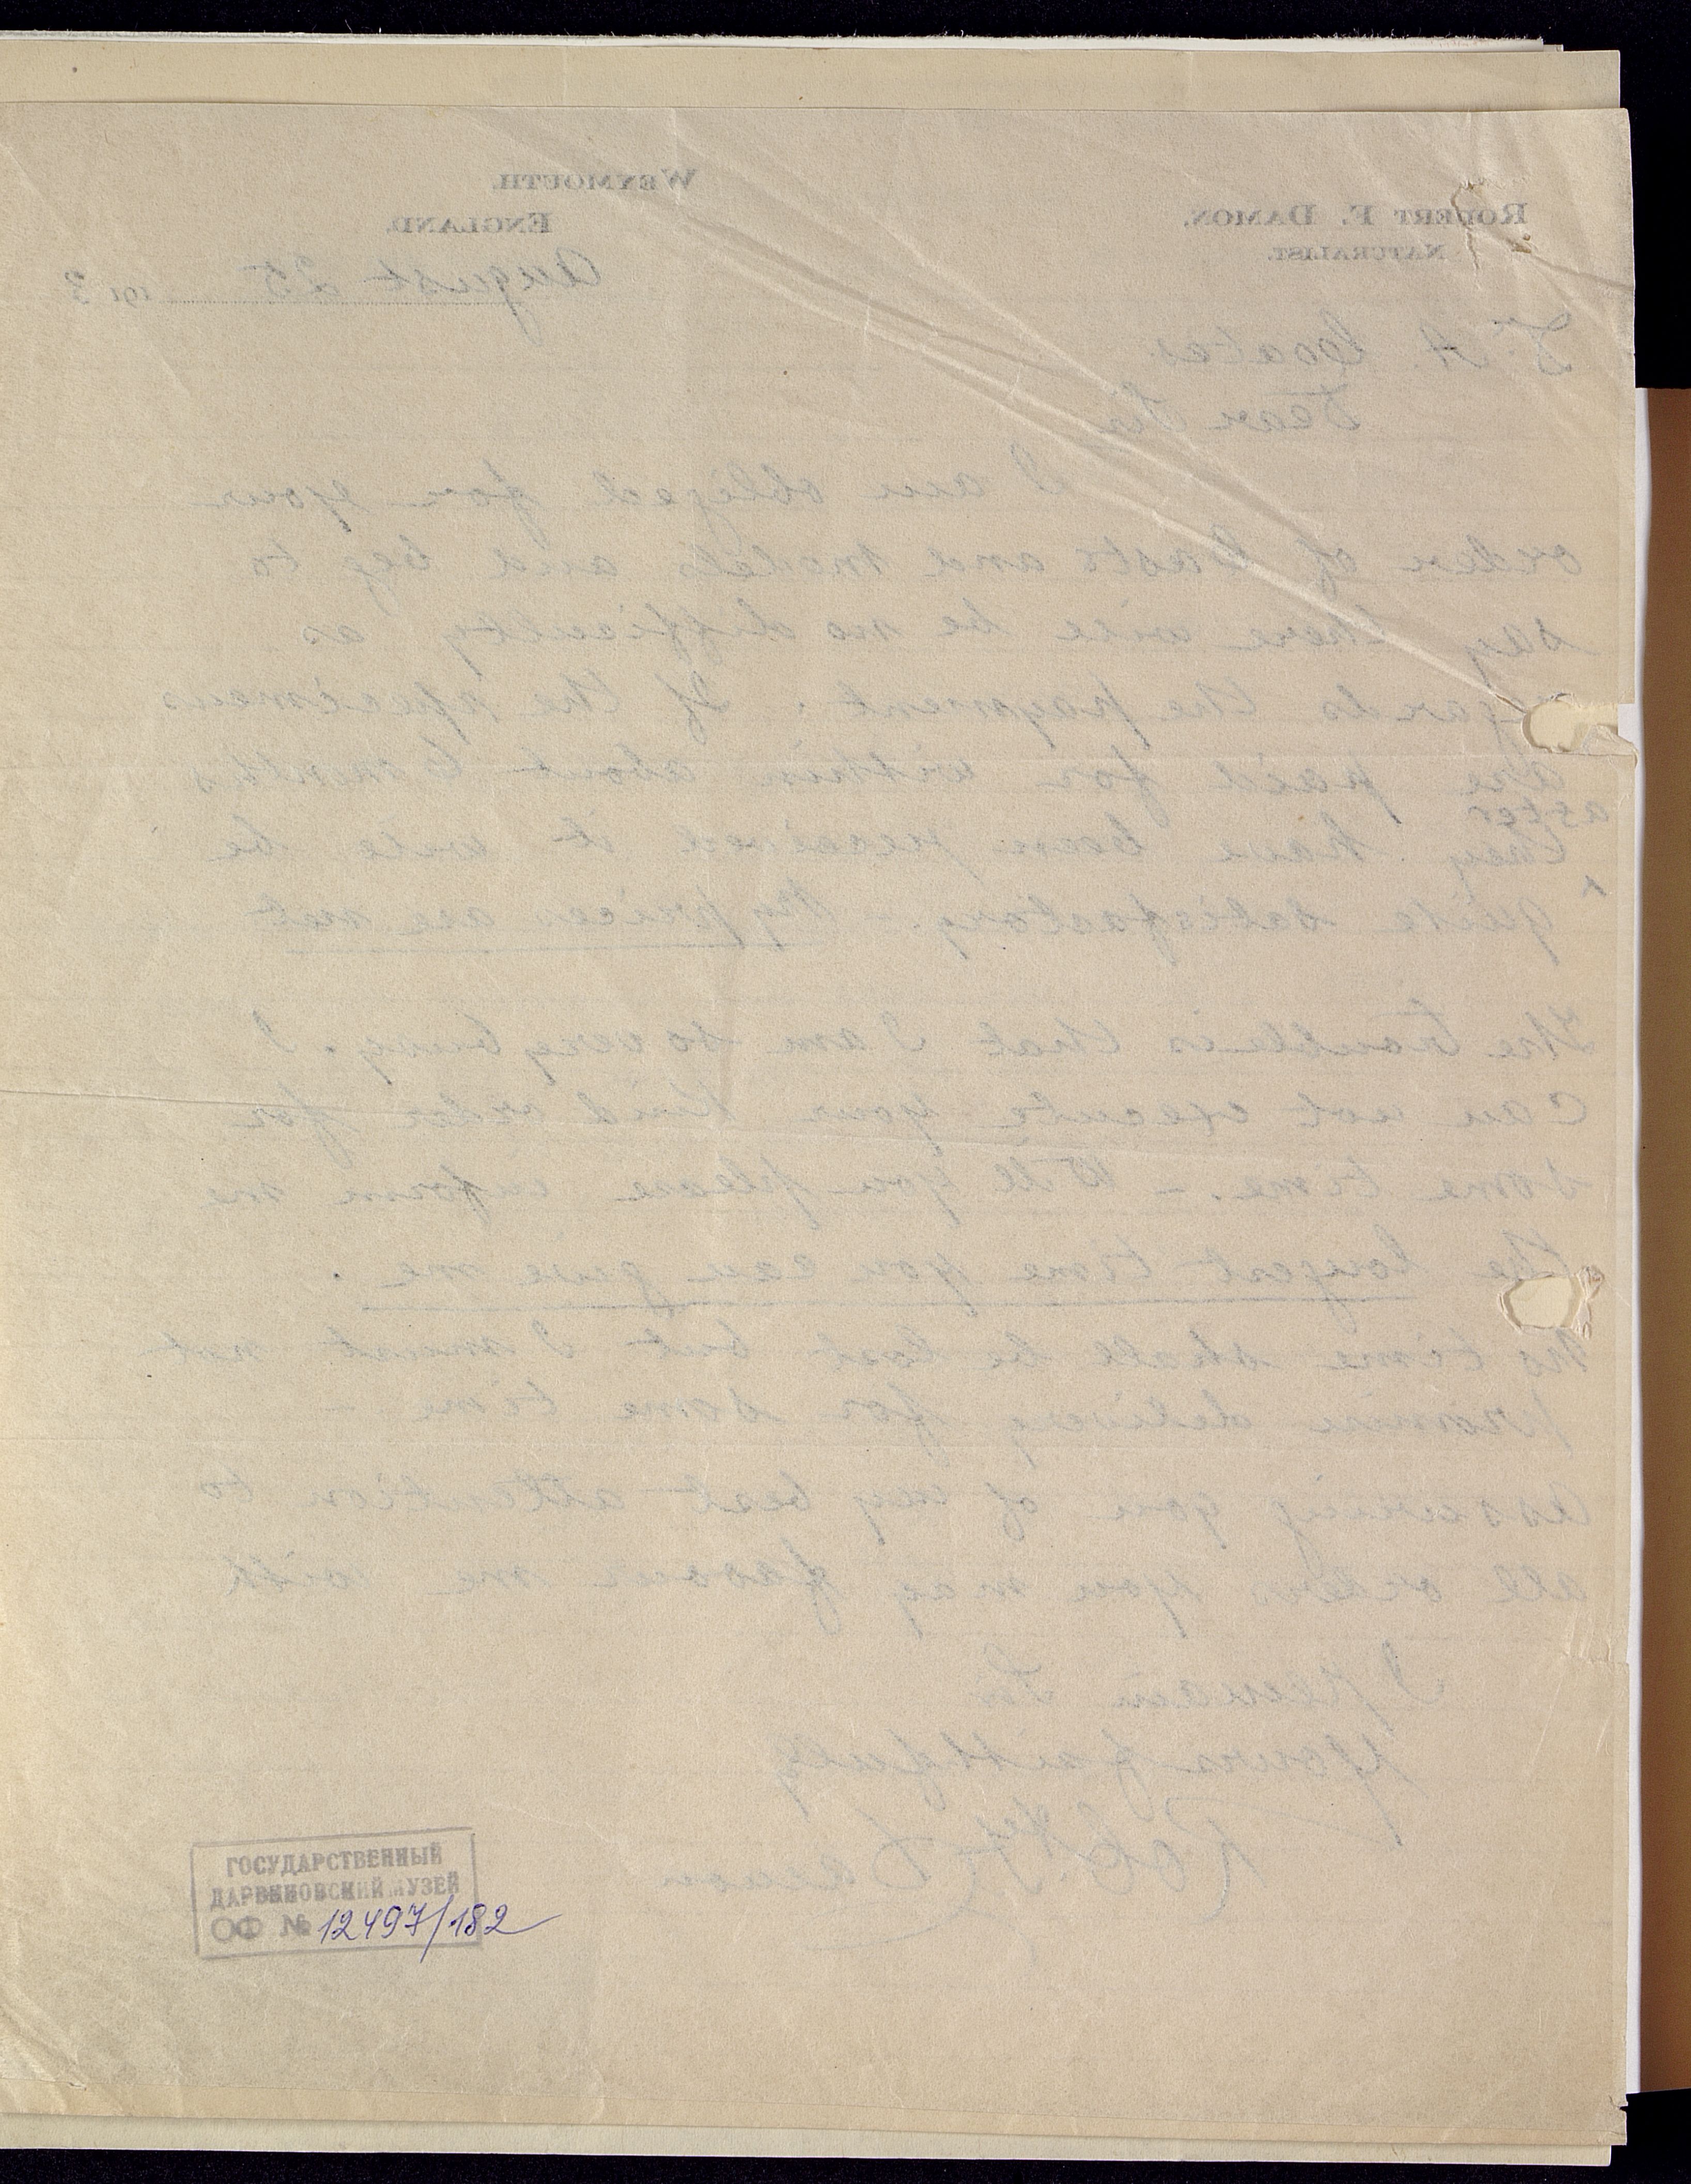 ROBERT F. DAMON.
NATURALIST.
WEYMOUTH.
ENGLAND.
August 25 1913
Dear Sir
I am obliged for your
order of Casts and models and beg to
say there will be no difficulty as
regards the payment. If the specimens
are paid for within about 6 months
after
they have been received it will be
quite satisfactory. – My prices are net
The trouble is that I am so very busy. I
can not execute your kind order for
some time. – Will you please inform me
the longest time you can give me.
No time shall be lost but I must not
promise delivery for some time –
Assuring you of my best attention to
all orders you may favour me with
I remain Sir
Yours faithfully
Robt. F. Damon
ГОСУДАРСТВЕННЫЙ
ДАРВИНОВСКИЙ МУЗЕЙ
ОФ № 12497/182